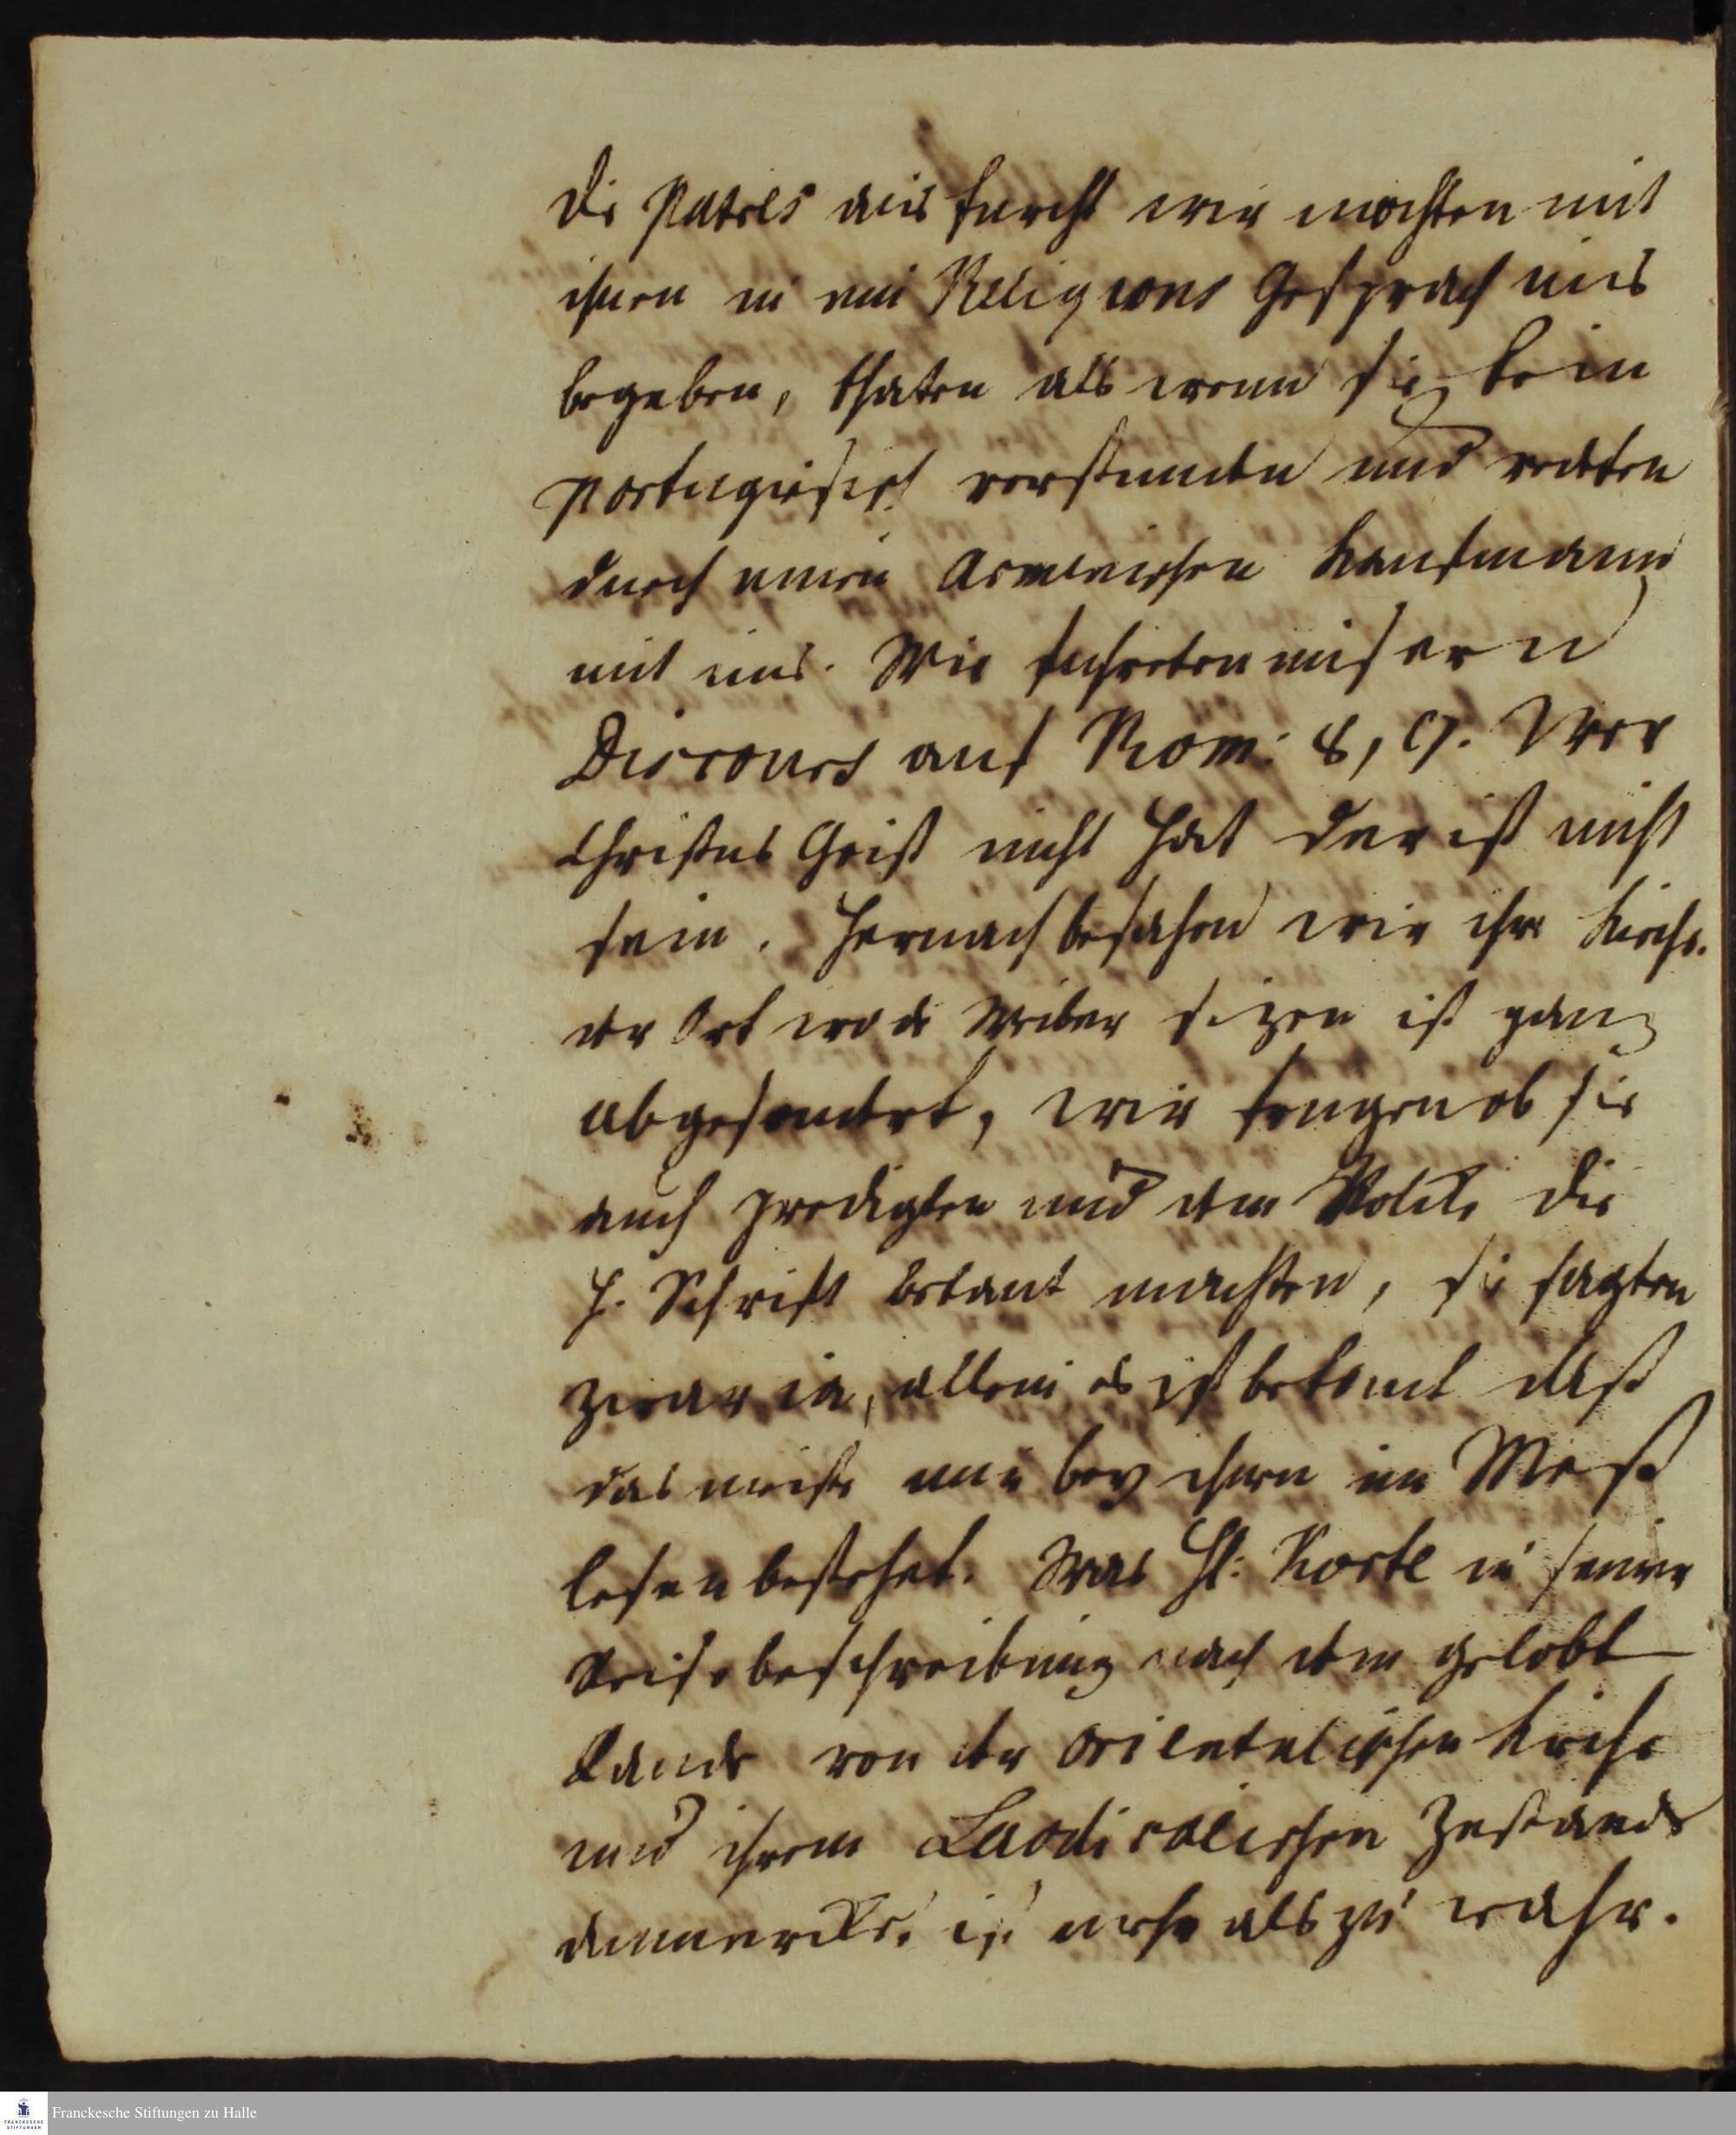 die Patres aus furcht wir mochten mit
ihnen in ein Religions Gespräch uns
begeben, thaten als wenn sie kein
portugiesisch verstunden und redeten
durch einen Armenischen Kaufmann
mit uns. Wir fuhreten unsern
Discours auf Rom: 8, 9. Wer
Christus Geist nicht hat der ist nicht
sein. Hernach besahen wir ihre Kirche.
der Ort wo die Weiber sizen ist ganz
abgesondert, wir frugen ob sie
auch predigten und dem Volcke die
H. Schrift bekant machten, sie sagten
zwar ia, allein es ist bekant daß
das meiste nur bey ihnen im Meß
lesen bestehet. Was H: Korte in seiner
Reisebeschreibung nach dem gelobt
Lande von der orientalischen Kirche
und ihrem Laodicaeischen Zustande
anmercket, ist mehr als zu wahr.
Franckesche Stiftungen zu Halle